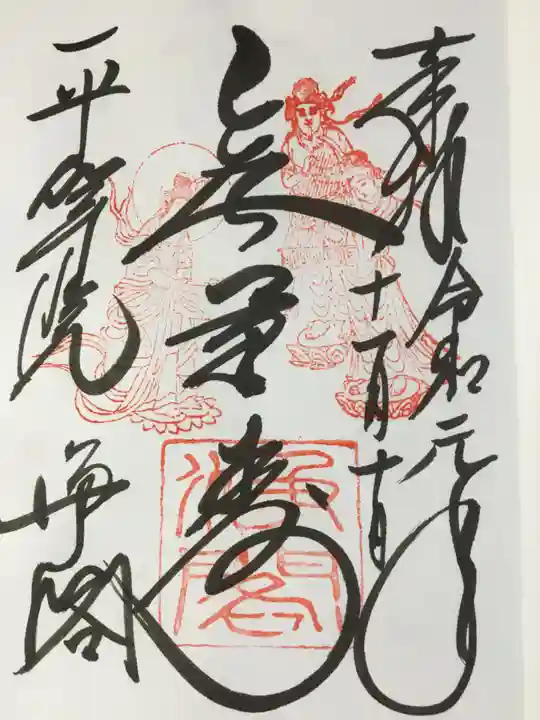 奉拝 令和元年
十一月十日
無量寿
平等院
海閣